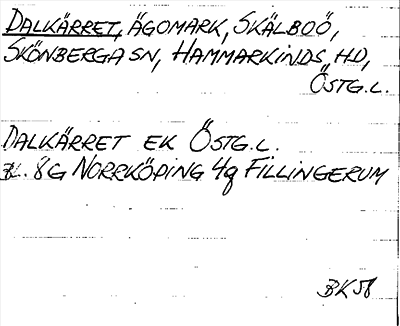 DALKÄRRET, ÄGOMARK, SKÄLBOÖ,
SKÖNBERGA SN, HAMMARKINDS HD,
ÖSTG.L.
DALKÄRRET EK ÖSTG.L.
BL. 8G NORRKÖPING 4g FILLINGERUM
BK58